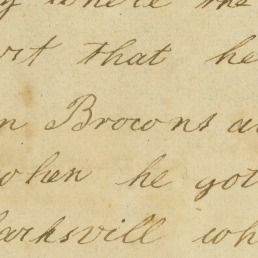 where the
that he
Browns
when he got
larksvill wh